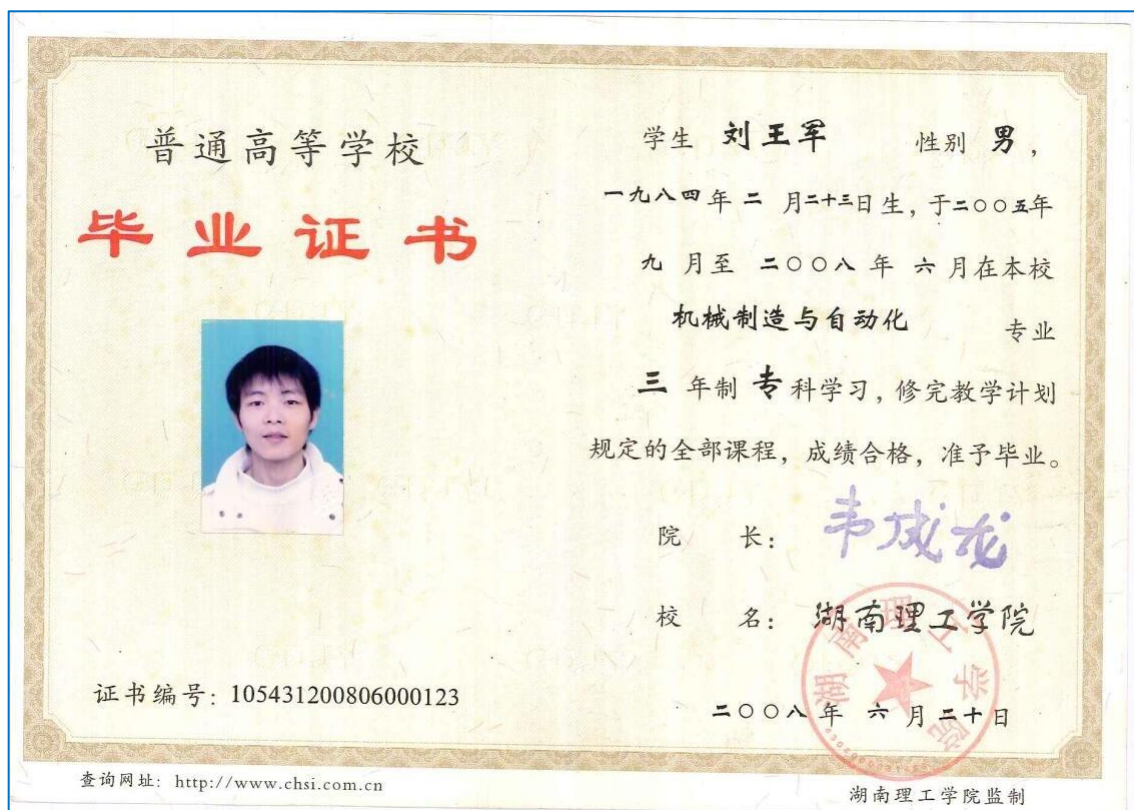 普通高等学校
毕业证书
证书编号：105431200806000123
学生 刘王军 性别 男，
一九八四年 二 月二十三日生，于二〇〇五年
九 月至 二〇〇八 年 六 月在本校
机械制造与自动化 专业
三 年制 专 科学习，修完教学计划
规定的全部课程，成绩合格，准予毕业。
院 长： 韦成龙
校 名： 湖南理工学院
湖南理工学院
二〇〇八 年 六 月 二十 日
查询网址：http://www.chsi.com.cn
湖南理工学院监制